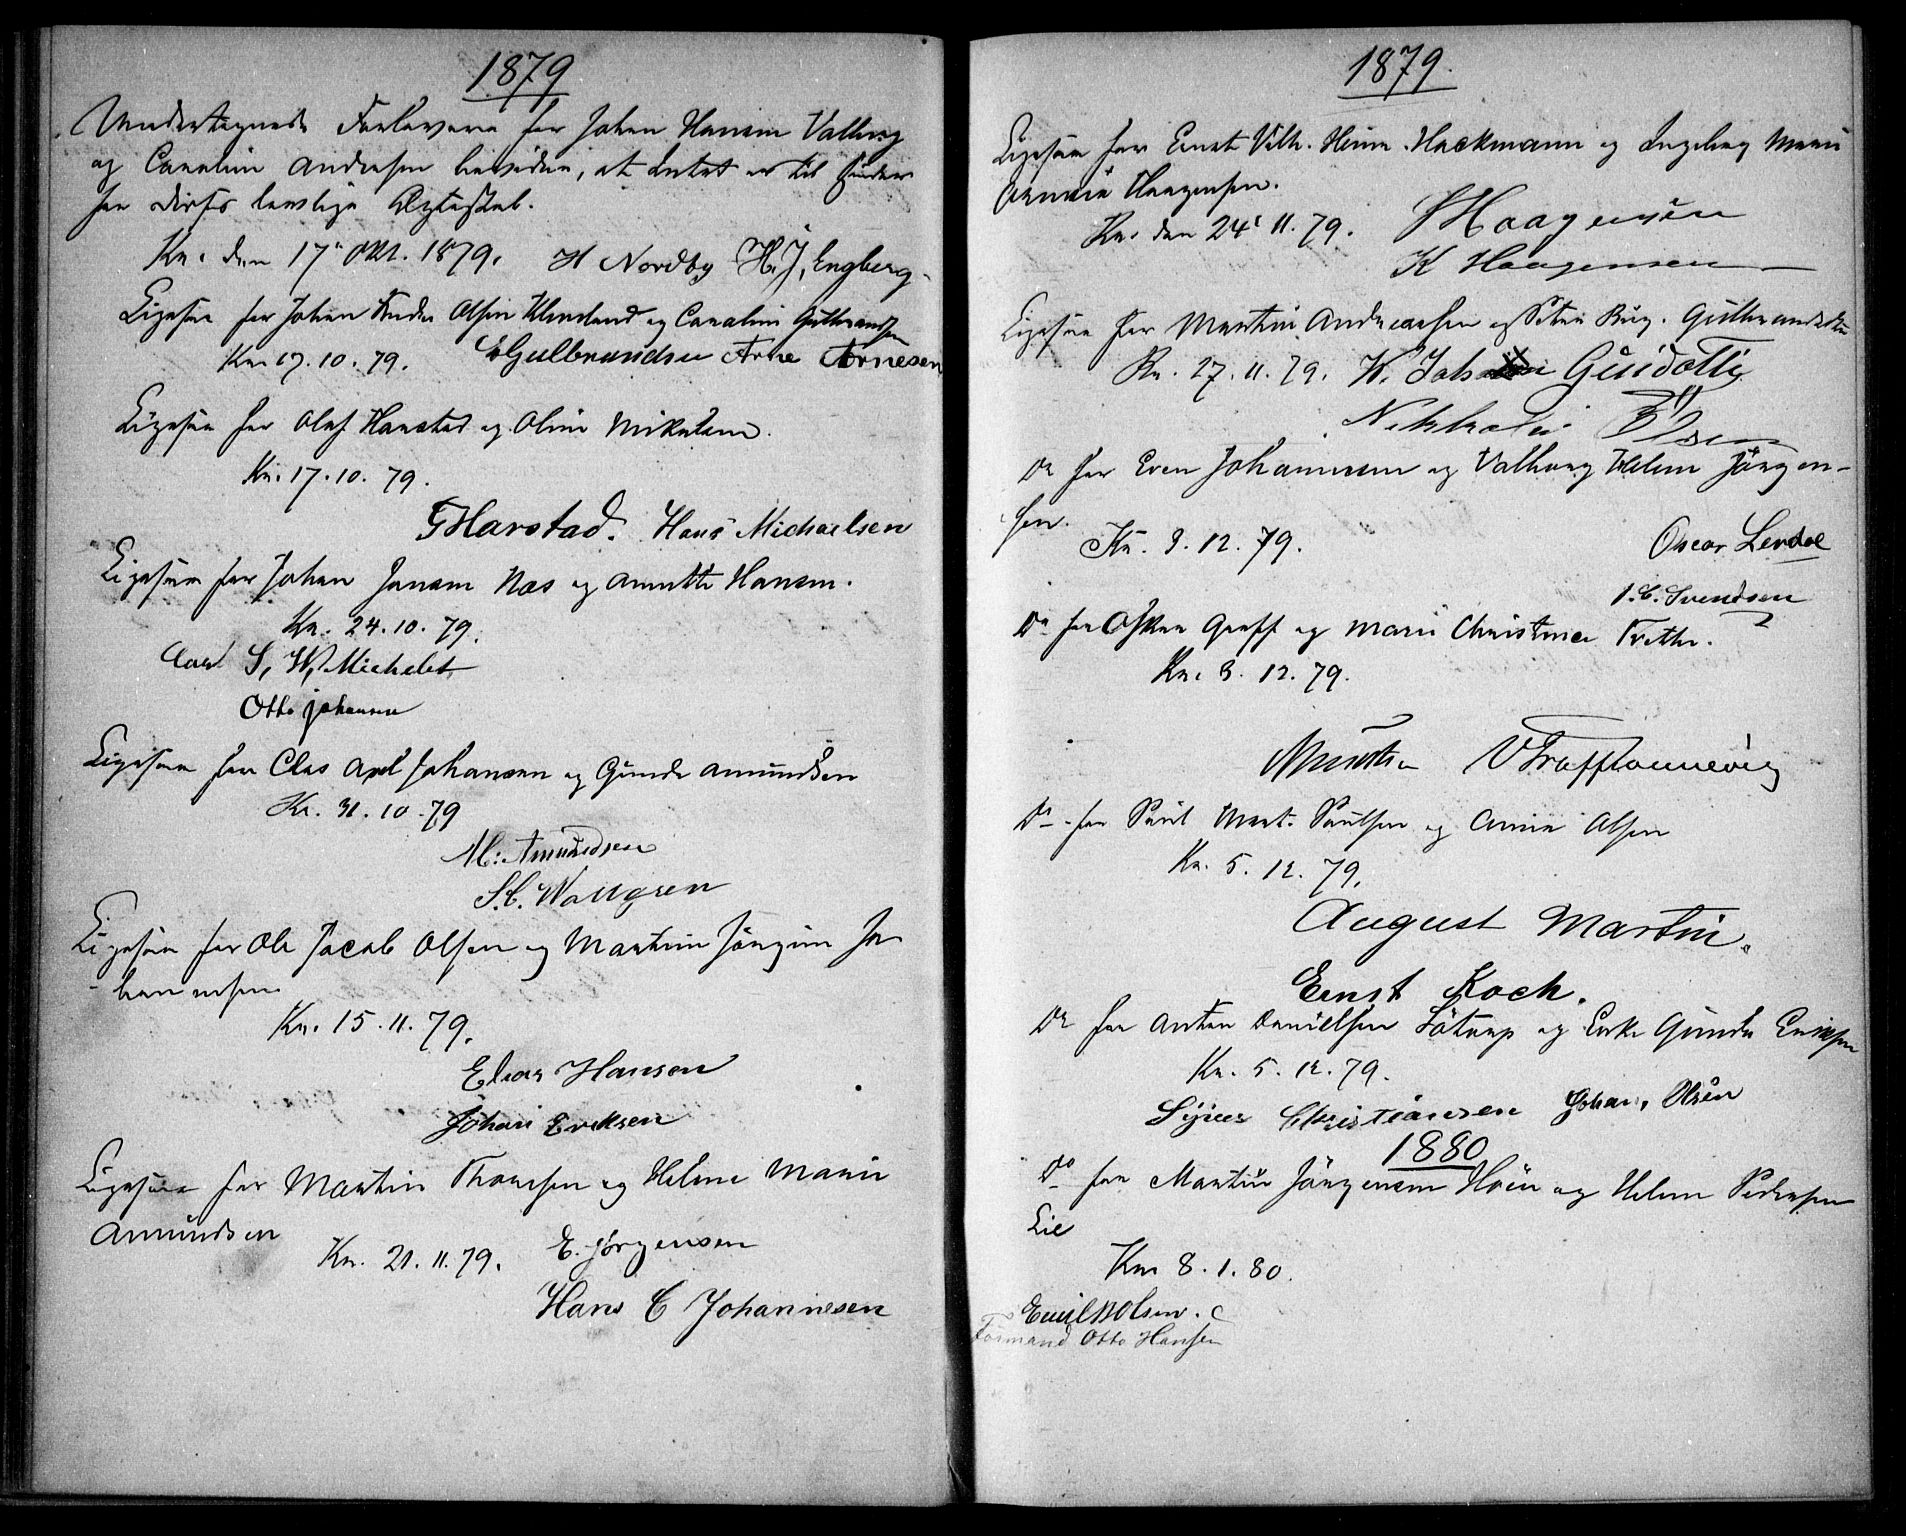 1879
Undertegnede Forlovere for Johan Hansen Valberg
og Caroline Andresen bevidne, at Intet er til Hinder
for disses lovlige Ægteskab.
Kr. den 17de Okt. 1879. H Nordby H. J. Engberg
Ligesaa for Johan Olsen og Caroline Gulbrandsen
Kr. 17.10.79. EGulbrandsen Arne Arnesen
Ligesaa for Olaf Harstad og Oline Mikelsen.
Kr. 17.10.79.
GHarstad. Hans Michaelsen
Ligesaa for Johan Jensen Næs og Annette Hansen.
Kr. 24.10.79.
Carl S. W. Michelet
Otto Johansen
Ligesaa for Clas Axel Johansen og Gunda Amundsen
Kr. 31.10.79
M: Amundsen
S. C. Wallgren
Ligesaa for Ole Jacob Olsen og Martine Jörgine Jo-
hannesen
Kr. 15.11.79.
Elias Hansen
Johan Eriksen
Ligesaa for Martin Thoresen og Helene Marie
Amundsen
Kr. 21.11.79. E. Jörgensen
Hans C Johannesen
1879.
Ligesaa for Ernst Vilh. Heinr. Hackmann og Ingeborg Marie
Haagensen.
Kr. den 24' 11. 79. Haagensen
K Haagensen
Ligesaa for Martin Andreassen og Gulbrandsen
Kr. 27.11.79. K. Guidotti
Olsen
Do for Even Johannesen og Valborg Helene Jörgen-
sen.
Kr. 3.12.79. Oscar Lerdal
I. C. Svendsen
Do for Oskar Graff og Marie Christine Trette.
Kr. 3.12.79.
Do for Paul Mart. Paulsen og Anna Olsen
Kr. 5.12.79.
August Martin.
Ernst Koch.
Do for Anton Danielsen og Gunda Eriksen
Kr. 5.12.79.
Christiansen Johan Olsen
1880
Do for Martin Jörgensen Höen og Helene Pedersen
Lie
Kr. 8.1.80.
Emil Olsen.
Formand Otto Hansen